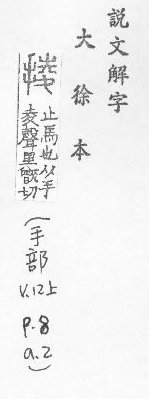 説文解字
大徐本
掕 止馬也从手
夌聲里甑切
(手部
V.12上
P.8
a.2)